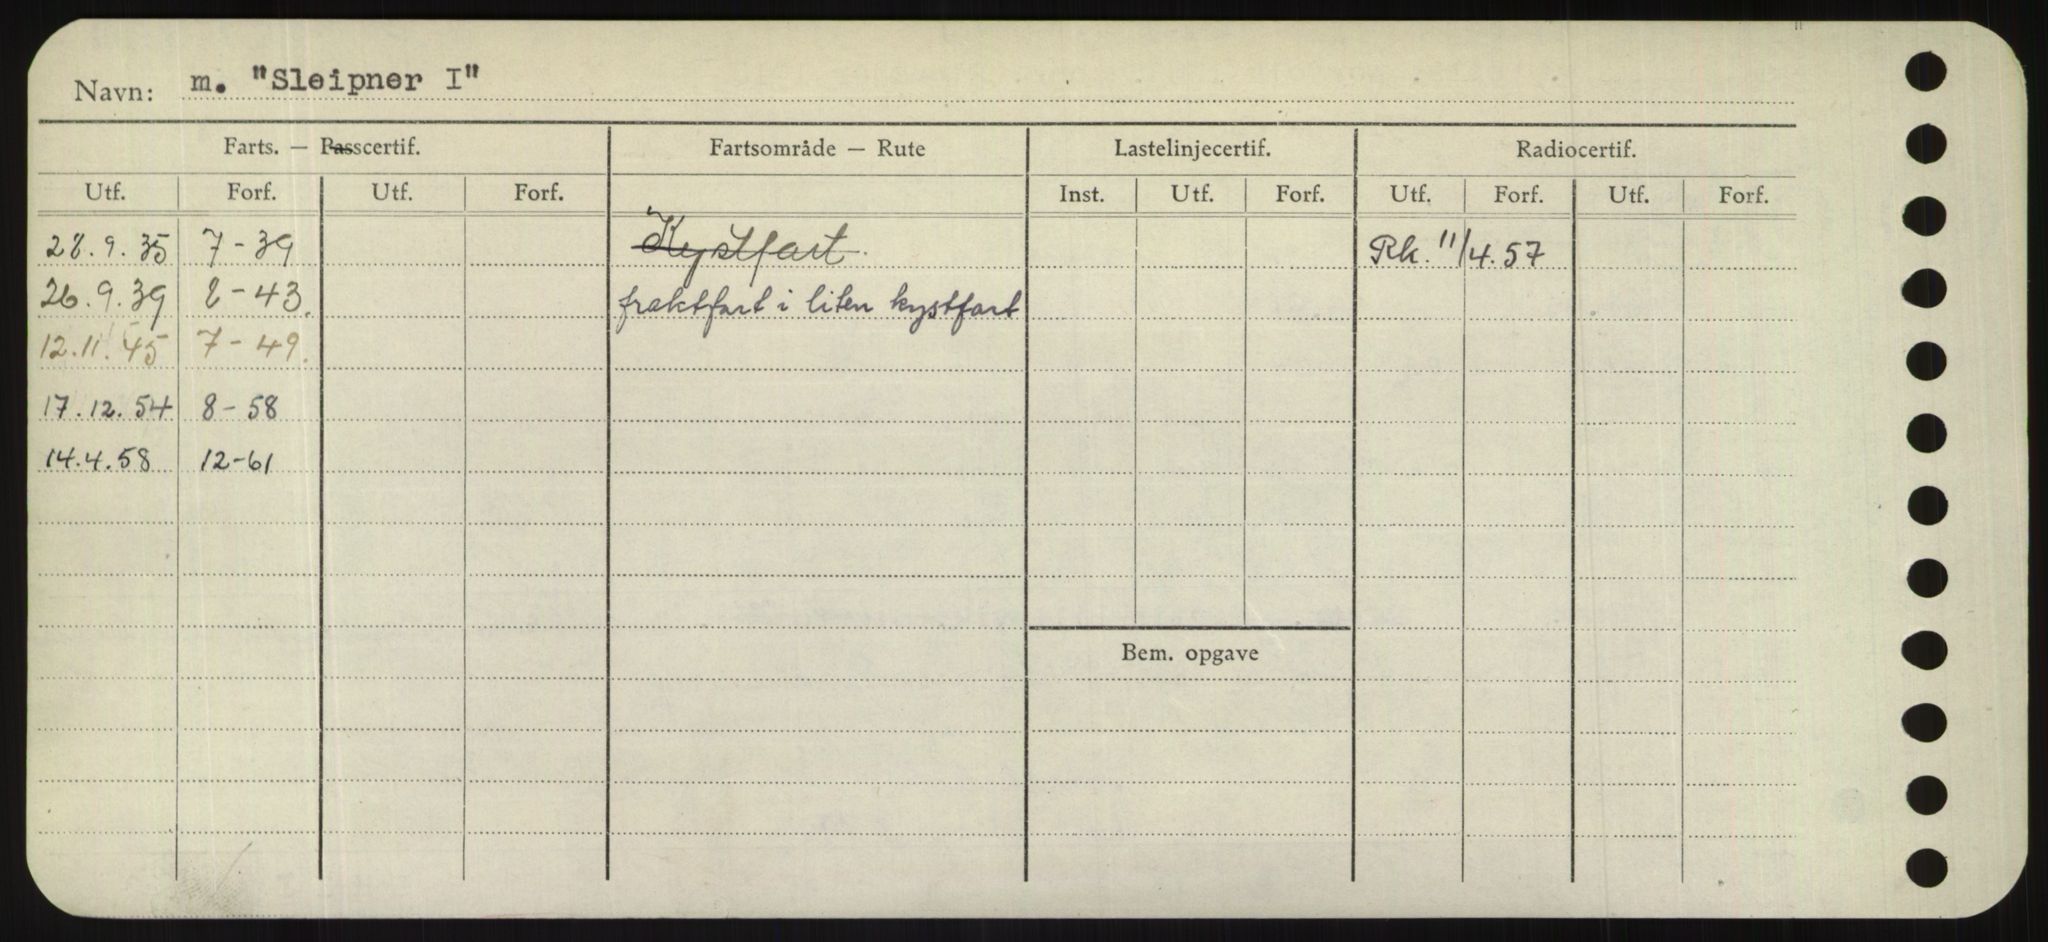 Navn: m. "Sleipner I"
Farts. — Passcertif. Fartsområde — Rute Lastelinjecertif. Radiocertif.
Utf. Forf. Utf. Forf. Inst. Utf. Forf. Utf. Forf. Utf. Forf.
28.9.35 7-39 Kystfart. Rk. 11/4.57
26.9.39 8-43. fraktfart i liten kystfart
12.11.45 7-49.
17.12.54 8-58
14.4.58 12-61
Bem. opgave